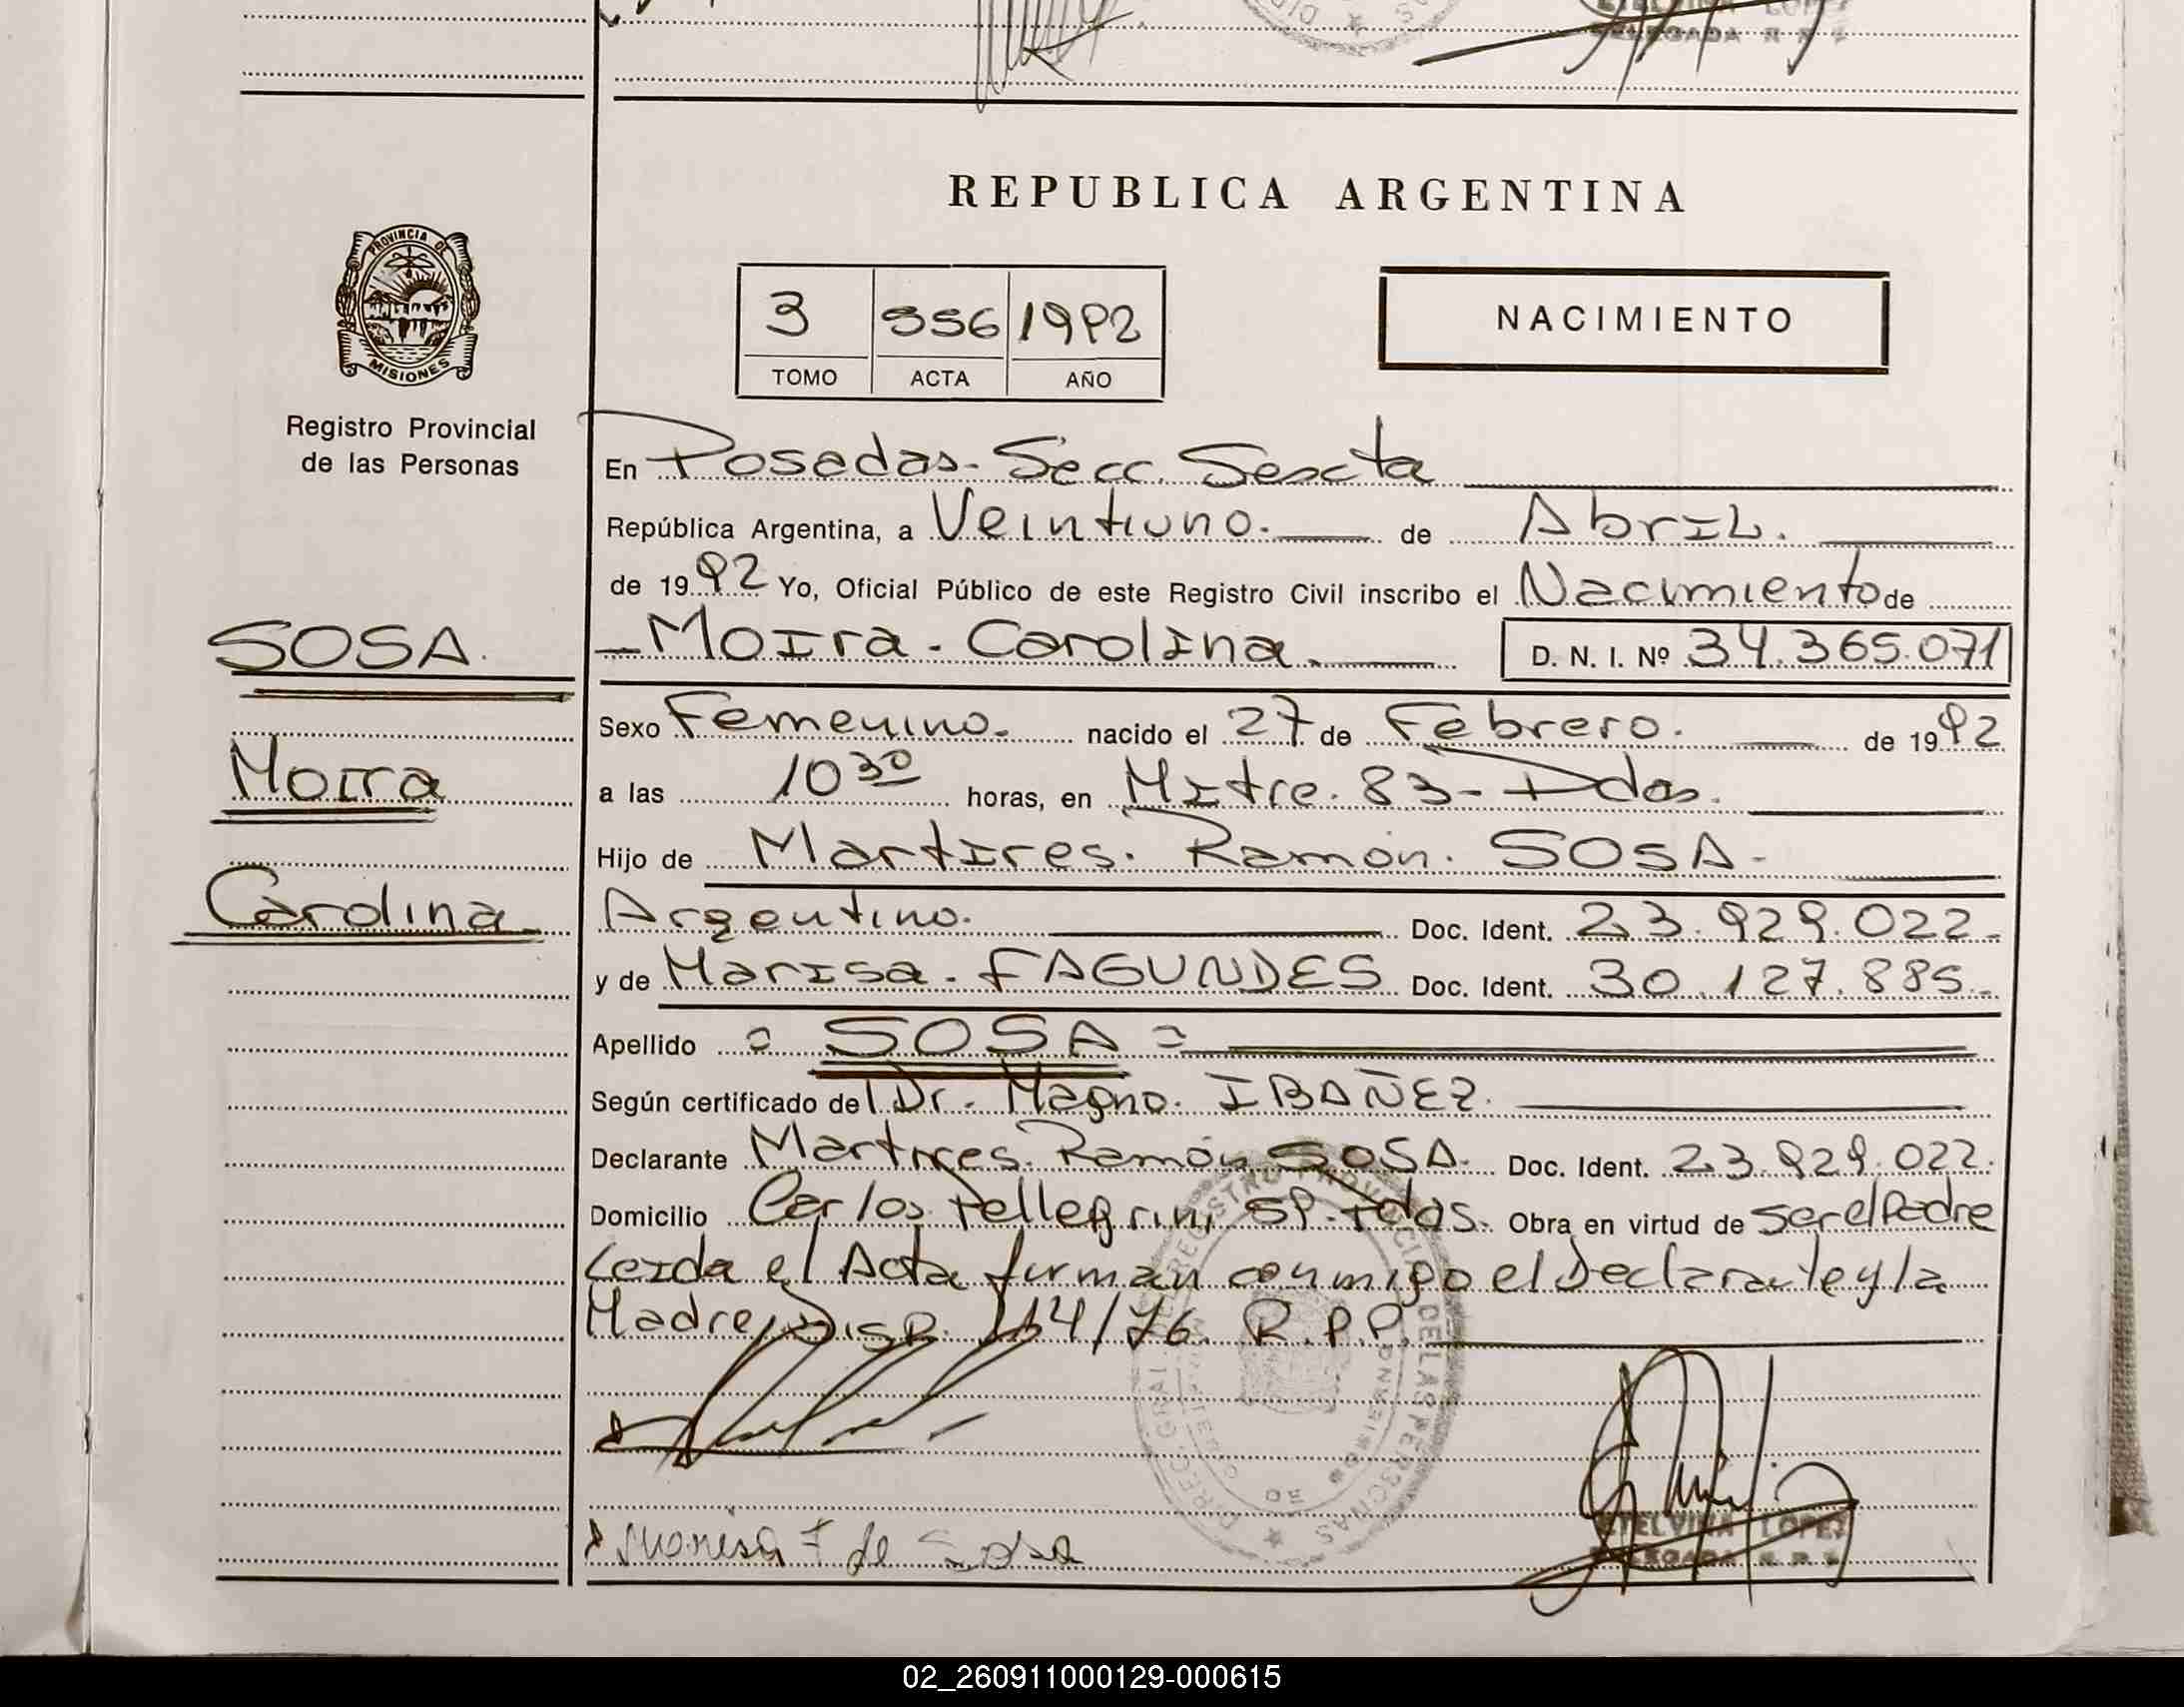 ETELVINA LOPEZ
DELEGADA R P P
REPUBLICA ARGENTINA
PROVINCIA DE
MISIONES
3 556 1992
TOMO ACTA AÑO
NACIMIENTO
Registro Provincial
de las Personas
En Posadas - Secc. Sexta
República Argentina, a Veintiuno. de Abril.
de 1992 Yo, Oficial Público de este Registro Civil inscribo el Nacimiento de
SOSA.
Moira
Carolina
- Moira - Carolina. D. N. I. Nº 34.365.071
Sexo Femenino. nacido el 27 de Febrero. de 1992
a las 10 30 horas, en Mitre. 83 - Pdas.
Hijo de Martires. Ramón. SOSA -
Argentino. Doc. Ident. 23.929.022 -
y de Marisa - FAGUNDES Doc. Ident. 30.127.885 -
Apellido = SOSA =
Según certificado del Dr. Magno. IBAÑEZ.
Declarante Martires. Ramón SOSA. Doc. Ident. 23.929.022.
Domicilio Carlos Pellegrini SP - Pdas. Obra en virtud de ser el Padre
Leida el Acta firman conmigo el Declarante y la
Madre, Disp. 114/76. R.P.P.
Marisa F de Sosa
ETELVINA LOPEZ
DELEGADA R. P. P.
02_260911000129-000615